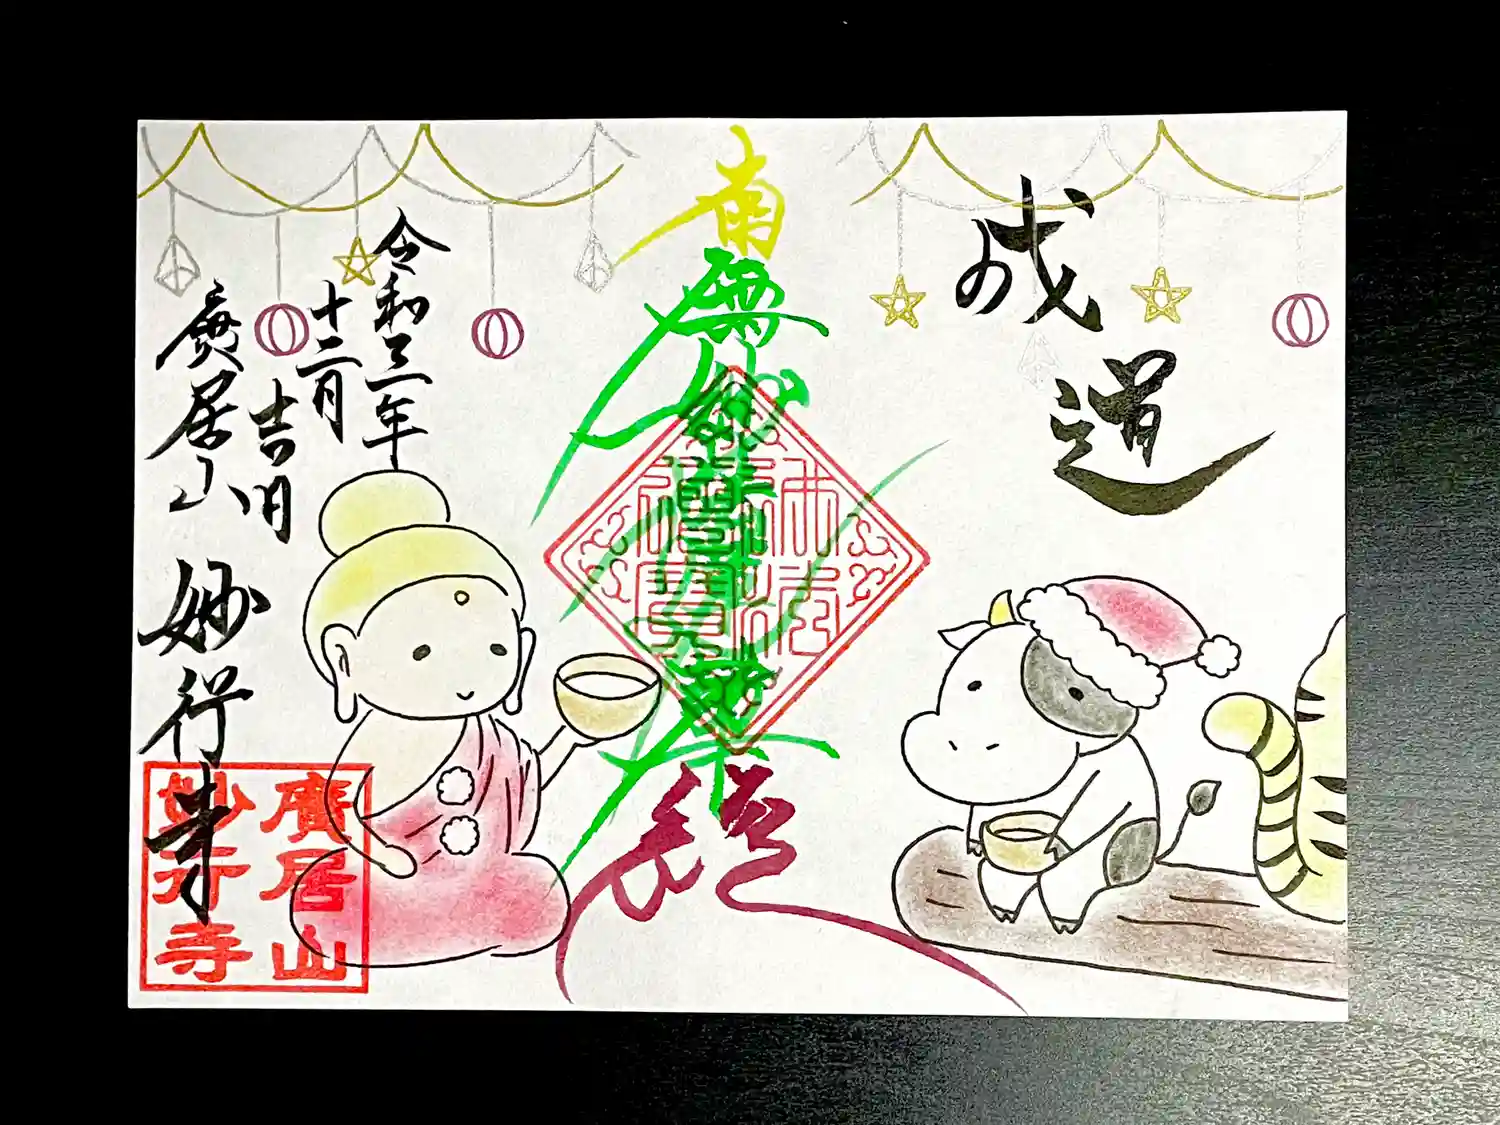 成道
南無妙法蓮華経
令和三年
十二月
吉日
廣居山
妙行寺
佛法
僧寶
廣居山
妙行寺